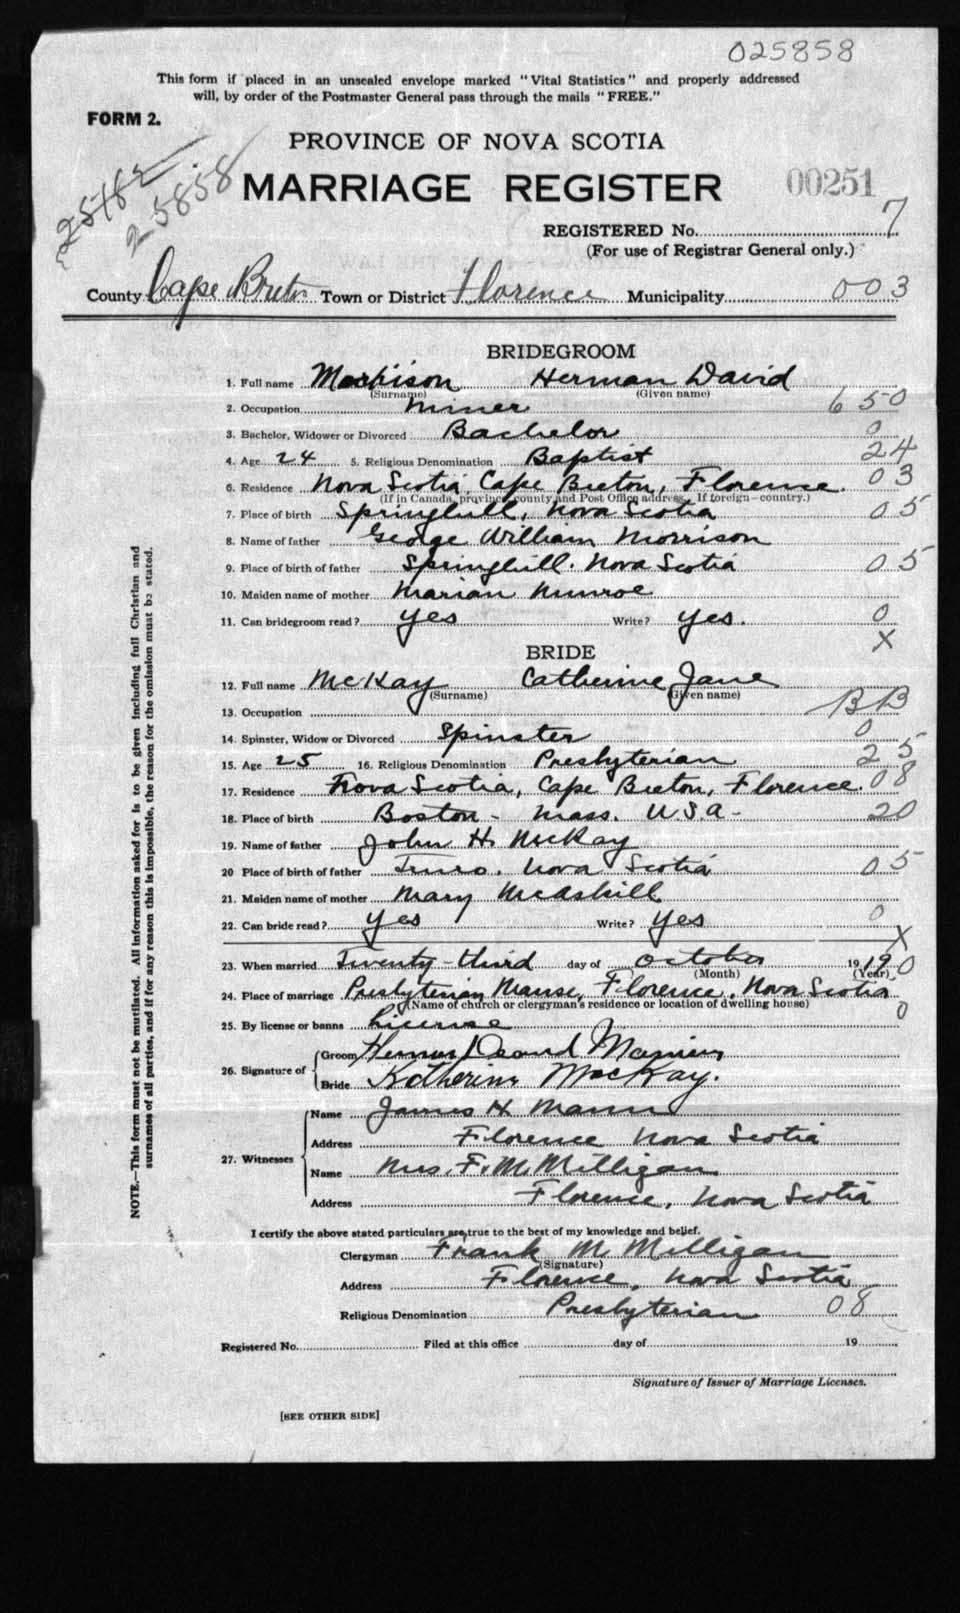 025858
This form if placed in an unsealed envelope marked "Vital Statistics" and properly addressed
will, by order of the Postmaster General pass through the mails "FREE."
FORM 2.
PROVINCE OF NOVA SCOTIA
25858
MARRIAGE REGISTER 00251
REGISTERED No. 7
(For use of Registrar General only.)
County Cape Breton Town or District Florence Municipality 003
BRIDEGROOM
1. Full name Morrison Herman David
(Surname) (Given name)
2. Occupation Miner 650
3. Bachelor, Widower or Divorced Bachelor 0
4. Age 24 5. Religious Denomination Baptist 24
6. Residence Nova Scotia, Cape Breton, Florence. 03
(If in Canada, province, county and Post Office address. If foreign—country.)
7. Place of birth Springhill, Nova Scotia 05
8. Name of father George William Morrison
9. Place of birth of father Springhill. Nova Scotia 05
10. Maiden name of mother Marian Munroe
11. Can bridegroom read? Yes Write? Yes. 0
X
BRIDE
12. Full name McKay Catherine Jane
(Surname) (Given name)
13. Occupation BB
14. Spinster, Widow or Divorced Spinster 0
15. Age 25 16. Religious Denomination Presbyterian 25
17. Residence Nova Scotia, Cape Breton, Florence. 08
18. Place of birth Boston - Mass. U.S.A - 20
19. Name of father John H. McKay
20 Place of birth of father Truro. Nova Scotia 05
21. Maiden name of mother Mary McAskill
22. Can bride read? Yes Write? Yes 0
X
23. When married Twenty-third day of October 19 19 0
(Month) (Year)
24. Place of marriage Presbyterian Manse, Florence, Nova Scotia
(Name of church or clergyman's residence or location of dwelling house) 0
25. By license or banns License
26. Signature of Groom Herman David Morrison
Bride Katherine MacKay.
27. Witnesses Name James H. Mann
Address Florence Nova Scotia
Name Mrs. F. M. Milligan
Address Florence, Nova Scotia
I certify the above stated particulars are true to the best of my knowledge and belief.
Clergyman Frank M. Milligan
(Signature)
Address Florence, Nova Scotia
Religious Denomination Presbyterian 08
Registered No. Filed at this office day of 19
Signature of Issuer of Marriage Licenses.
[SEE OTHER SIDE]
NOTE.—This form must not be mutilated. All information asked for is to be given including full Christian and
surnames of all parties, and if for any reason this is impossible, the reason for the omission must be stated.